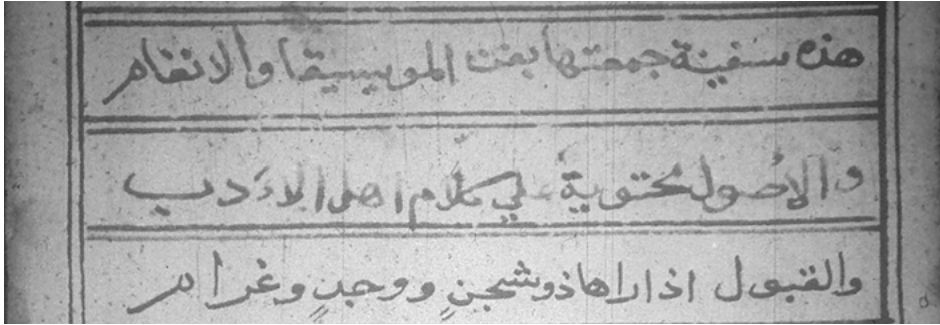 هذه سفينة جمعتها بفن الموسيقا والانغام
والاُصول محتوية علي كلام اهل الاَدب
والقبول اذا راها ذو شجنٍ ووجدٍ وغرام